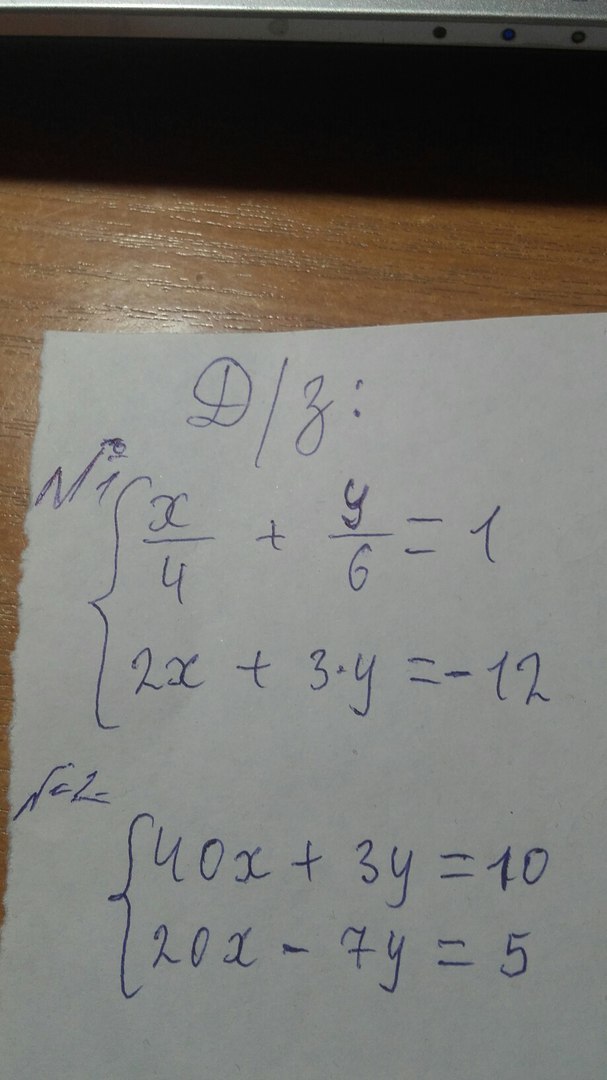 Д/з:
№1
x/4 + y/6 = 1
2x + 3·y = -12
№2
40x + 3y = 10
20x - 7y = 5